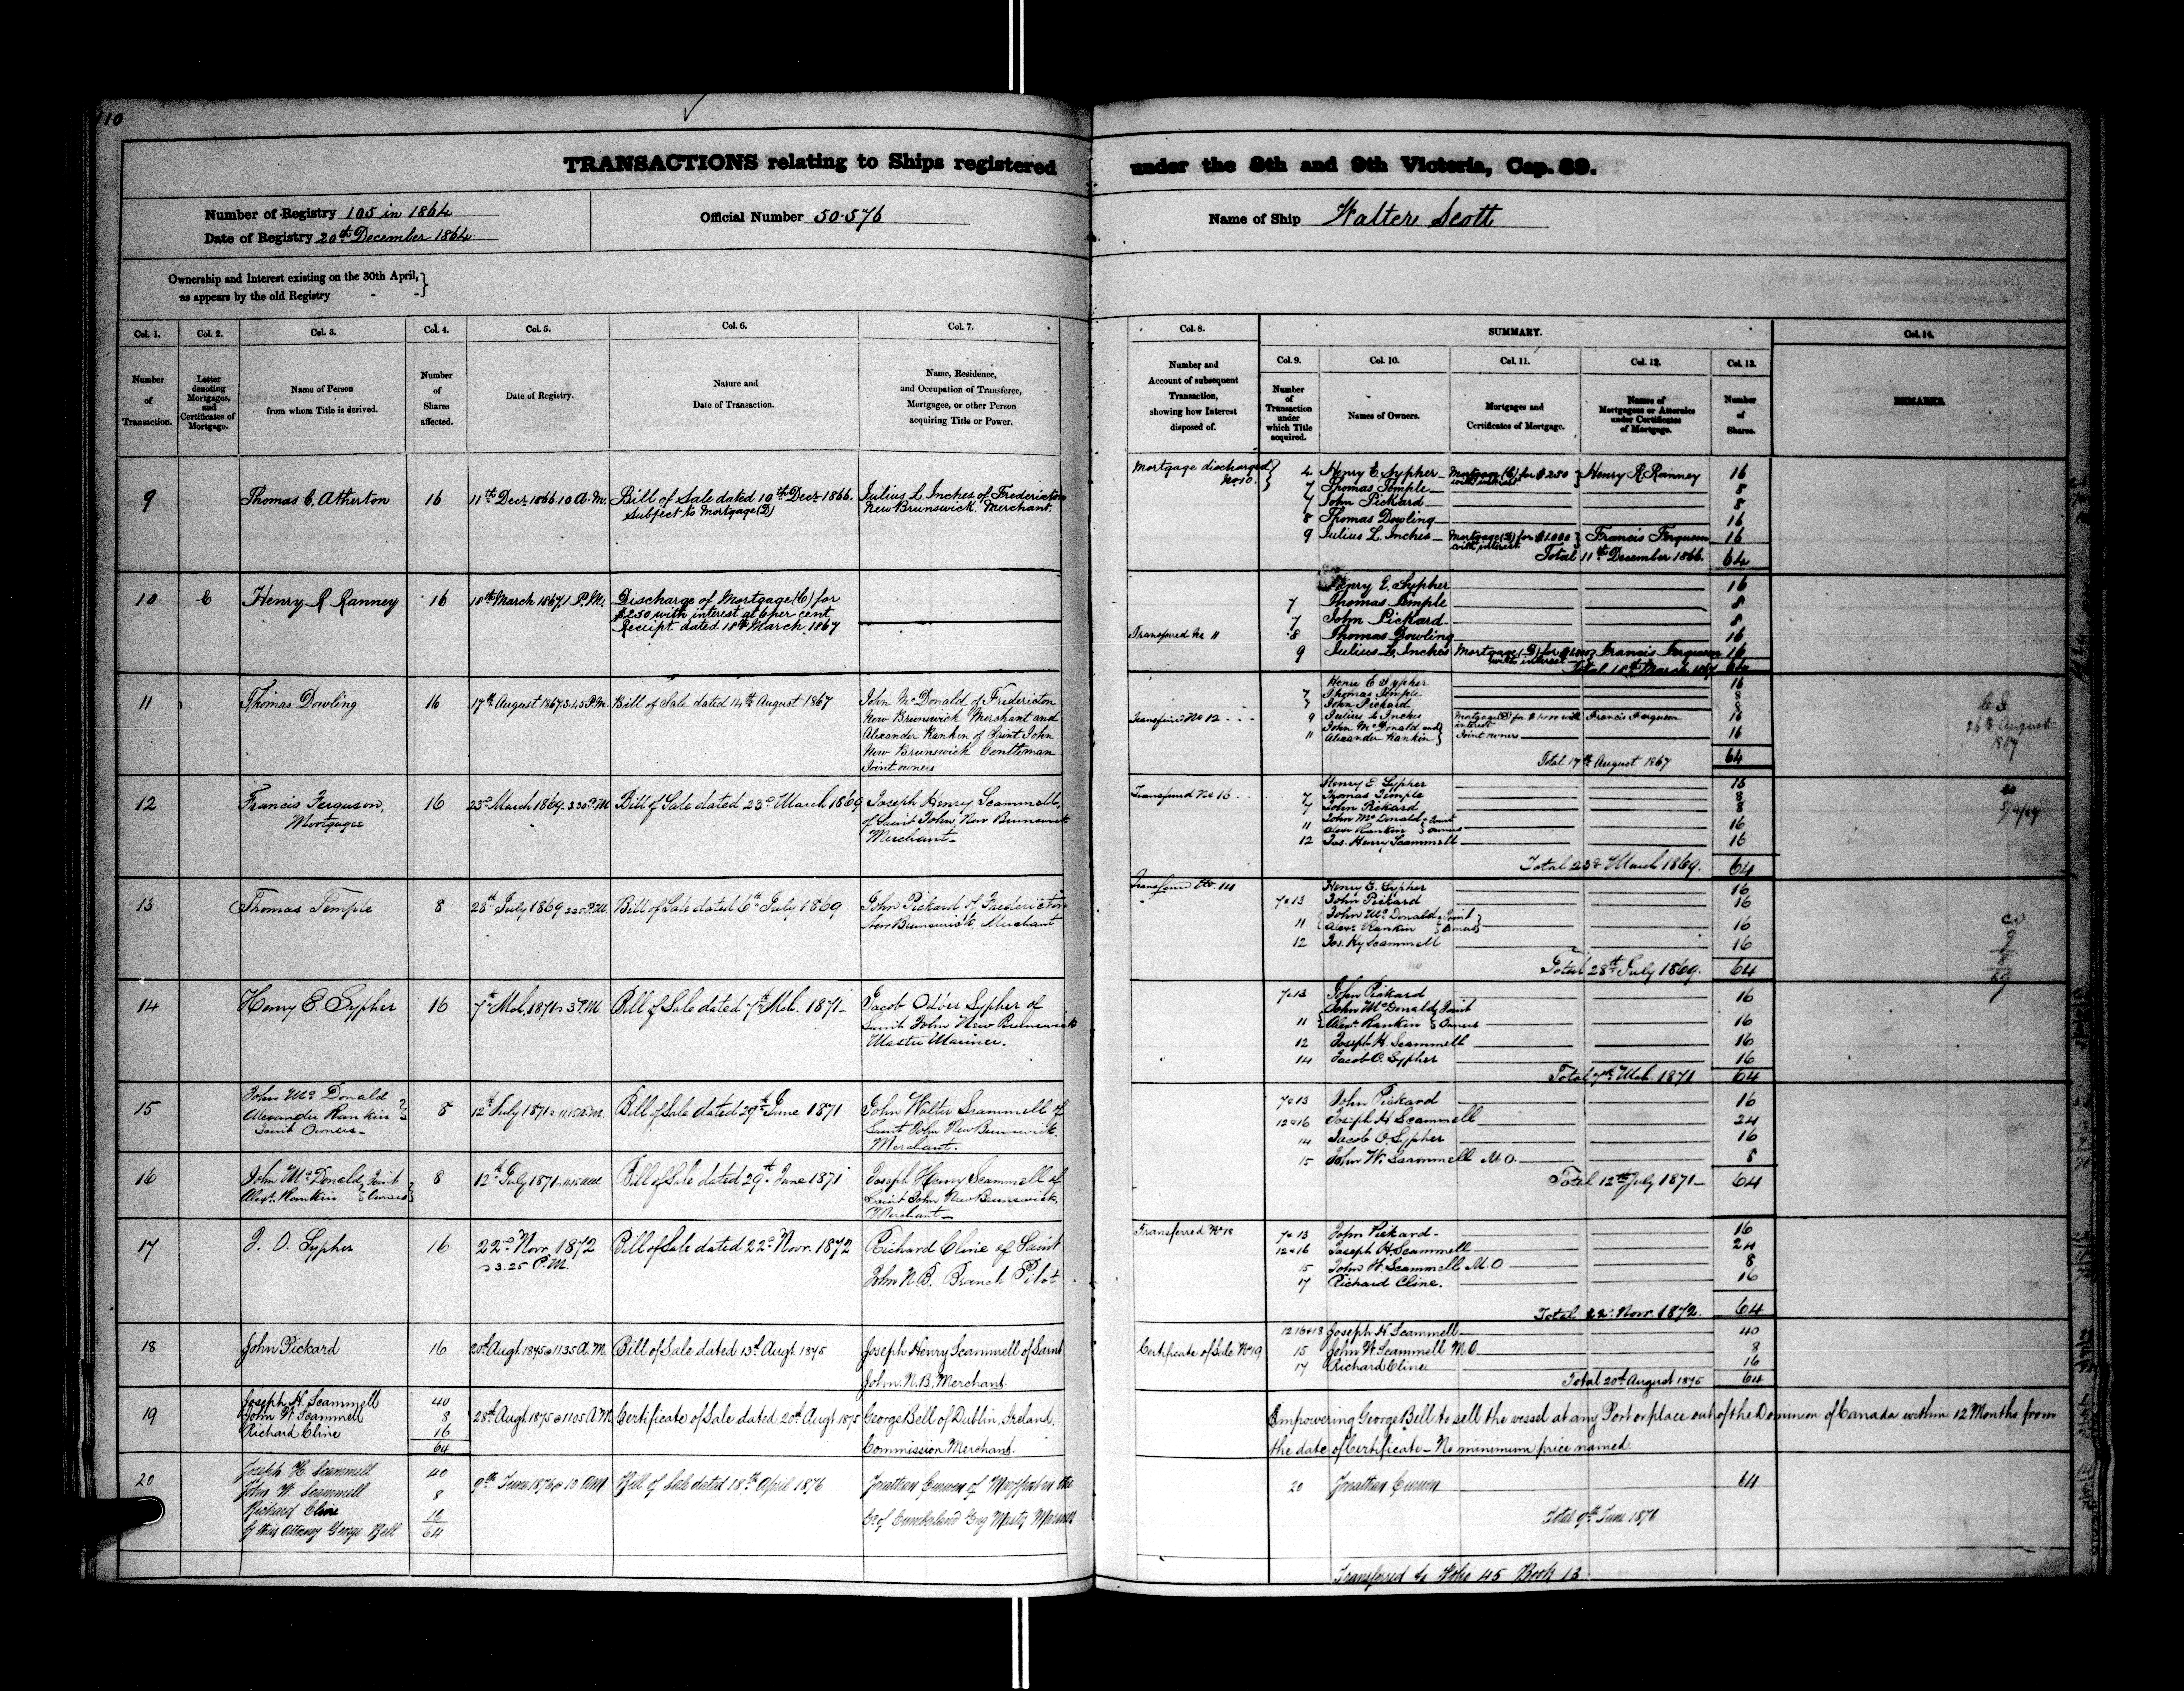 110
TRANSACTIONS relating to Ships registered under the 8th and 9th Victoria, Cap. 89.
Number of Registry 105 in 1864
Date of Registry 20th December 1864
Official Number 50.576
Name of Ship Walter Scott
Ownership and Interest existing on the 30th April,
as appears by the old Registry - -
Col. 1. Col. 2. Col. 3. Col. 4. Col. 5. Col. 6. Col. 7. Col. 8. SUMMARY. Col. 14.
Col. 9. Col. 10. Col. 11. Col. 12. Col. 13.
Number of Transaction.
Letter denoting Mortgages, and Certificates of Mortgage.
Name of Person from whom Title is derived.
Number of Shares affected.
Date of Registry.
Nature and Date of Transaction.
Name, Residence, and Occupation of Transferee, Mortgagee, or other Person acquiring Title or Power.
Number and Account of subsequent Transaction, showing how Interest disposed of.
Number of Transaction under which Title acquired.
Names of Owners.
Mortgages and Certificates of Mortgage.
Names of Mortgagees or Attornies under Certificates of Mortgage.
Number of Shares.
REMARKS.
9 Thomas C. Atherton 16 11th Decr 1866. 10 A.M. Bill of Sale dated 10th Decr 1866. Julius L. Inches of Fredericton
Subject to Mortgage (D) New Brunswick. Merchant.
Mortgage discharged
No 10.
4 Henry E Sypher Mortgage (C) for $250 Henry R Ranney 16
with interest
7 Thomas Temple 8
7 John Pickard 8
8 Thomas Dowling 16
9 Julius L. Inches Mortgage (D) for $1000 Francis Ferguson 16
with interest
Total 11th December 1866. 64
10 C Henry R Ranney 16 18th March 1867 1 P.M. Discharge of Mortgage (C) for
$250 with interest at 6 per cent
Receipt dated 18th March 1867
Transferred No 11
Henry E. Sypher 16
7 Thomas Temple 8
7 John Pickard 8
8 Thomas Dowling 16
9 Julius L. Inches Mortgage (D) for $1000 Francis Ferguson 16
with interest
Total 18th March 1867 64
11 Thomas Dowling 16 17th August 1867 3.45 P.M. Bill of Sale dated 14th August 1867 John McDonald of Fredericton
New Brunswick Merchant and
Alexander Rankin of Saint John
New Brunswick Gentleman
Joint owners
Transferred No 12
Henry E Sypher 16
7 Thomas Temple 8
7 John Pickard 8
9 Julius L Inches Mortgage (D) for $1000 with Francis Ferguson 16
interest
11 John McDonald and Alexander Rankin Joint owners 16
Total 17th August 1867 64
26th August
1867
12 Francis Ferguson, 16 23d March 1869. 3 30 P.M. Bill of Sale dated 23d March 1869 Joseph Henry Scammell,
Mortgagee of Saint John, New Brunswick
Merchant
Transferred No 13
Henry E Sypher 16
7 Thomas Temple 8
7 John Pickard 8
11 John McDonald Alexr Rankin Joint owners 16
12 Jos. Henry Scammell 16
Total 23d March 1869. 64
5/4/69
13 Thomas Temple 8 28th July 1869 Bill of Sale dated 6th July 1869 John Pickard of Fredericton
New Brunswick, Merchant
Transferred No. 14
Henry E. Sypher 16
7 & 13 John Pickard 16
11 John McDonald Alexr Rankin Joint Owners 16
12 Jos. Hy Scammell 16
Total 28th July 1869. 64
9
8
69
14 Henry E Sypher 16 7th Mch. 1871 3 P.M Bill of Sale dated 7th Mch. 1871 Jacob Odber Sypher of
Saint John New Brunswick
Master Mariner.
7 & 13 John Pickard 16
11 John McDonald Alexr. Rankin Joint Owners 16
12 Joseph H. Scammell 16
14 Jacob O. Sypher 16
Total 7th Mch. 1871 64
15 John McDonald
Alexander Rankin
Joint Owners 8 12th July 1871 11.15 A.M. Bill of Sale dated 29th June 1871 John Walter Scammell of
Saint John New Brunswick.
Merchant.
7 & 13 John Pickard 16
12 & 16 Joseph H Scammell 24
14 Jacob O. Sypher 16
15 John W. Scammell M.O. 8
Total 12th July 1871 64
16 John McDonald Alexr. Rankin Joint Owners 8 12th July 1871 11.15 A.M. Bill of Sale dated 29th June 1871 Joseph Henry Scammell of
Saint John New Brunswick,
Merchant
17 J. O. Sypher 16 22d Novr. 1872 Bill of Sale dated 22d Novr. 1872 Richard Cline of Saint
3.25 P.M. John N.B. Branch Pilot
Transferred No 18
7 & 13 John Pickard 16
12 & 16 Joseph H. Scammell 24
15 John W. Scammell M.O 8
17 Richard Cline. 16
Total 22d Novr. 1872. 64
18 John Pickard 16 20th Augt. 1875 @ 11.35 A.M. Bill of Sale dated 13th Augt. 1875 Joseph Henry Scammell of Saint
John. N.B. Merchant
Certificate of Sale No 19
12 16 & 18 Joseph H. Scammell 40
15 John W Scammell M.O. 8
17 Richard Cline 16
Total 20th August 1875 64
19 Joseph H. Scammell 40
John W. Scammell 8
Richard Cline 16
64
28th Augt. 1875 @ 11.05 A.M. Certificate of Sale dated 20th Augt. 1875 George Bell of Dublin, Ireland,
Commission Merchant.
Empowering George Bell to sell the vessel at any Port or place out of the Dominion of Canada within 12 Months from
the date of Certificate - No minimum price named
20 Joseph H Scammell 40
John W. Scammell 8
Richard Cline 16
by their Attorney George Bell 64
9th June 1876 @ 10 AM Bill of Sale dated 18th April 1876 Jonathan Curwen of Maryport in the
Co of Cumberland Eng Master Mariner
20 Jonathan Curwen 64
Total 9th June 1876
Transferred to Folio 45 Book 13